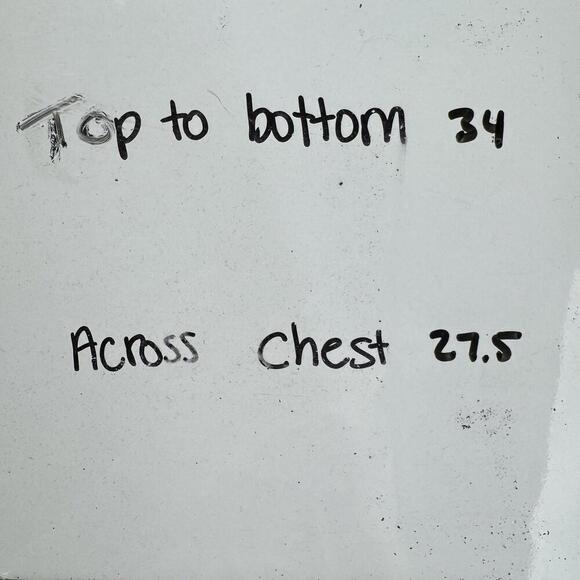 Top to bottom 34
Across Chest 27.5